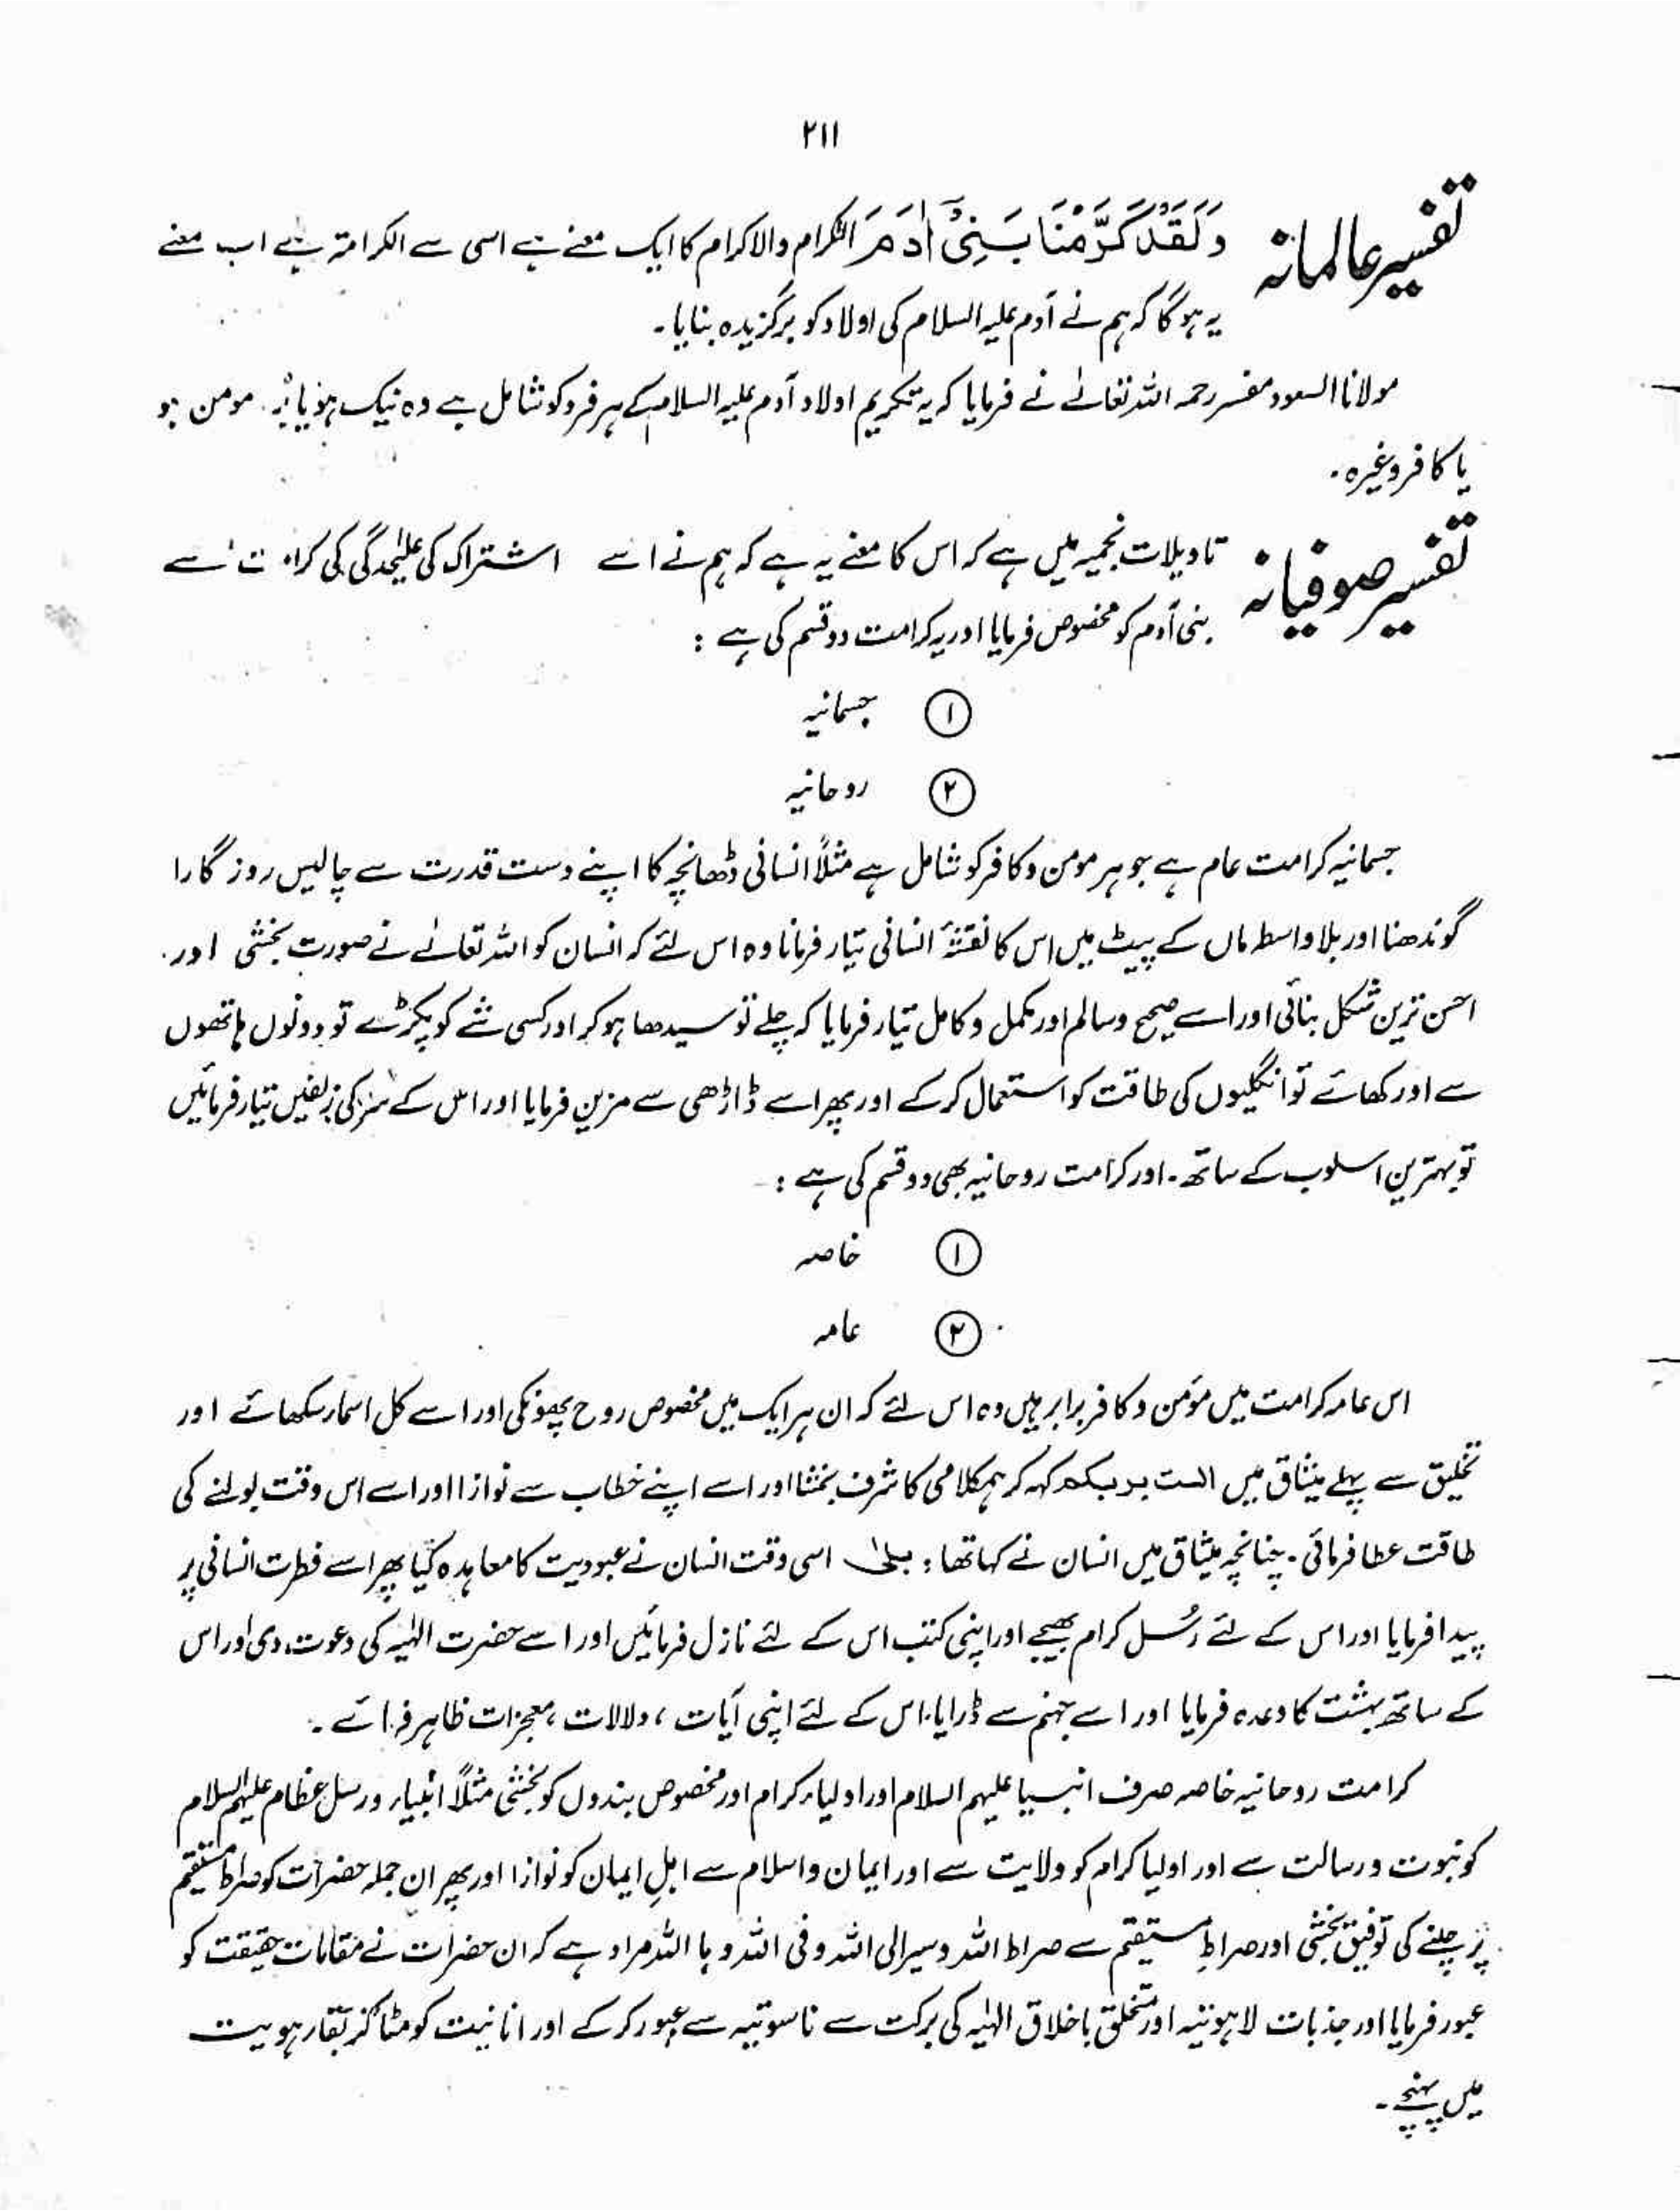 ۲۱۱
تفسیر عالمانہ وَلَقَدْ كَرَّمْنَا بَنِیْۤ اٰدَمَ الکرام والاکرام کا ایک معنے ہے اسی سے الکرامۃ ہے اب معنے
یہ ہوگا کہ ہم نے آدم علیہ السلام کی اولاد کو برگزیدہ بنایا۔
مولانا السعود مفسر رحمہ اللہ تعالےٰ نے فرمایا کہ یہ تکریم اولاد آدم علیہ السلام کے ہر فرد کو شامل ہے وہ نیک ہو یا مومن ہو
یا کافر وغیرہ۔
تفسیر صوفیانہ تاویلات نجمیہ میں ہے کہ اس کا معنے یہ ہے کہ ہم نے اسے اشتراک کی علیٰحدگی کی سے
بنی آدم کو مخصوص فرمایا اور یہ کرامت دو قسم کی ہے :
① جسمانیہ
② روحانیہ
جسمانیہ کرامت عام ہے جو ہر مومن و کافر کو شامل ہے مثلاً انسانی ڈھانچہ کا اپنے دست قدرت سے چالیس روز گارا
گوندھنا اور بلا واسطہ ماں کے پیٹ میں اس کا نقشۂ انسانی تیار فرمانا وہ اس لئے کہ انسان کو اللہ تعالےٰ نے صورت بخشی اور
احسن ترین شکل بنائی اور اسے صحیح و سالم اور مکمل و کامل تیار فرمایا کہ چلے تو سیدھا ہو کر اور کسی شے کو پکڑے تو دونوں ہاتھوں
سے اور کھائے تو انگلیوں کی طاقت کو استعمال کر کے اور پھر اسے ڈاڑھی سے مزین فرمایا اور اس کے سر کی زلفیں تیار فرمائیں
تو بہترین اسلوب کے ساتھ۔ اور کرامت روحانیہ بھی دو قسم کی ہے :
① خاصہ
② عامہ
اس عامہ کرامت میں مومن و کافر برابر ہیں وہ اس لئے کہ ان ہر ایک میں مخصوص روح پھونکی اور اسے کل اسماء سکھائے اور
تخلیق سے پہلے میثاق میں الست بربکم کہہ کر ہمکلامی کا شرف بخشا اور اسے اپنے خطاب سے نوازا اور اسے اس وقت بولنے کی
طاقت عطا فرمائی۔ چنانچہ میثاق میں انسان نے کہا تھا : بلیٰ اسی وقت انسان نے عبودیت کا معاہدہ کیا پھر اسے فطرت انسانی پر
پیدا فرمایا اور اس کے لئے رُسل کرام بھیجے اور اپنی کتب اس کے لئے نازل فرمائیں اور اسے حضرت الٰہیہ کی دعوت دی اور اس
کے ساتھ بہشت کا وعدہ فرمایا اور اسے جہنم سے ڈرایا، اس کے لئے اپنی آیات ، دلالات ، معجزات ظاہر فرمائے ۔
کرامت روحانیہ خاصہ صرف انبیا علیہم السلام اور اولیاء کرام اور مخصوص بندوں کو بخشی مثلاً انبیاء و رسل عظام علیہم السلام
کو نبوت و رسالت سے اور اولیا کرام کو ولایت سے اور ایمان و اسلام سے اہلِ ایمان کو نوازا اور پھر ان جملہ حضرات کو صراط مستقیم
پر چلنے کی توفیق بخشی اور صراطِ مستقیم سے صراط اللہ و سیر الی اللہ و فی اللہ و با اللہ مراد ہے کہ ان حضرات نے مقامات حقیقت کو
عبور فرمایا اور جذبات لاہوتیہ اور متخلق باخلاق الہٰیہ کی برکت سے ناسوتیہ سے عبور کر کے اور انانیت کو مٹا کر بقاء ہویت
میں پہنچے ۔